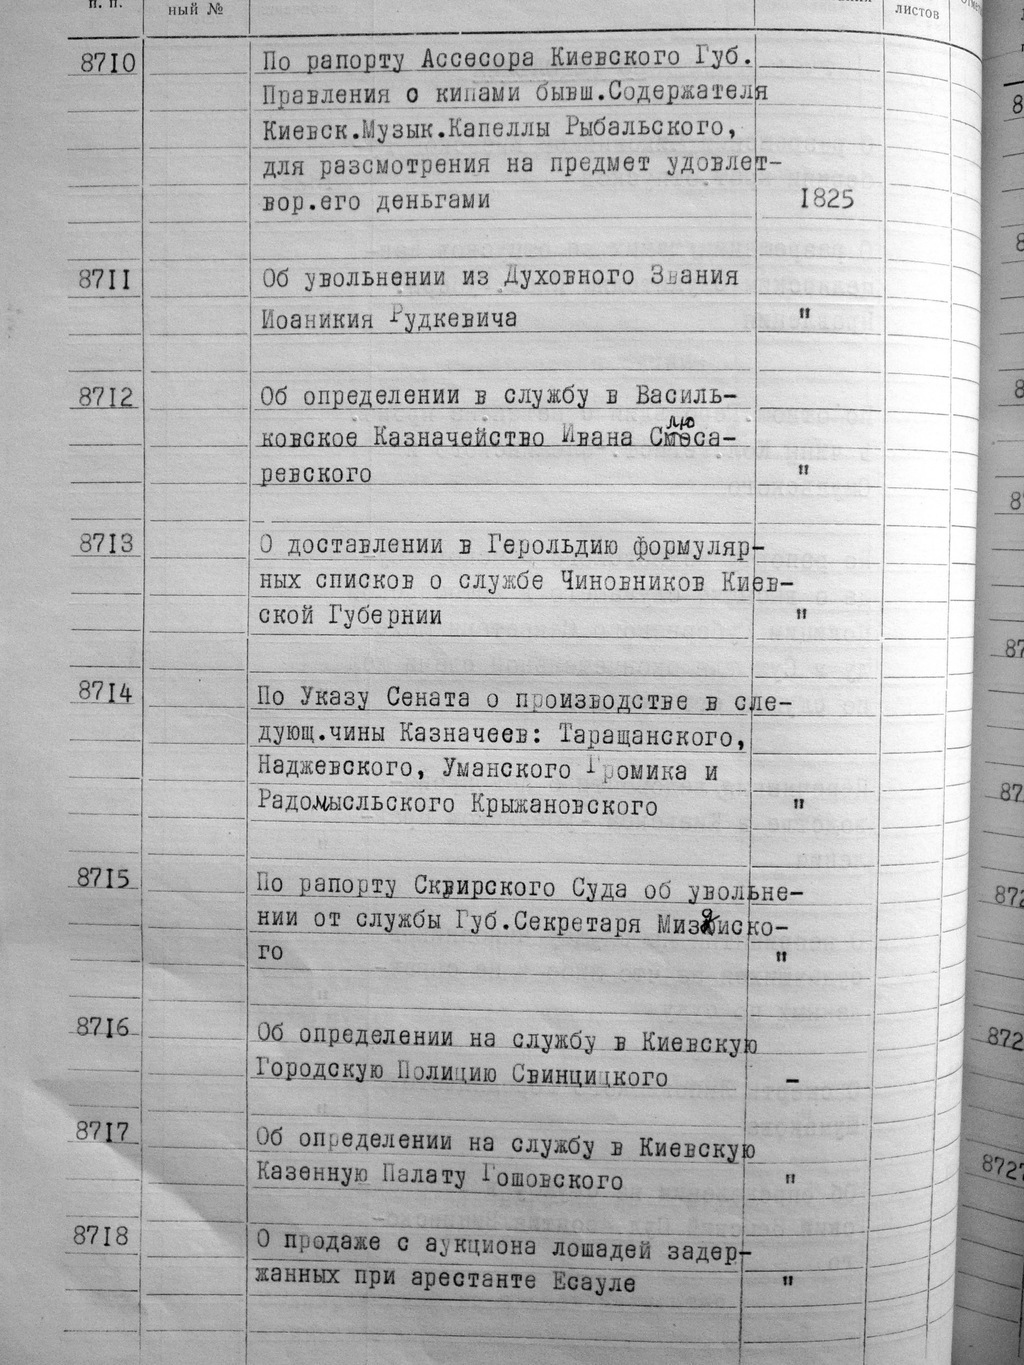 п. п.
ный №
листов
8710 По рапорту Ассесора Киевского Губ.
Правления о кипами бывш.Содержателя
Киевск.Музык.Капеллы Рыбальского,
для разсмотрения на предмет удовлет-
вор.его деньгами 1825
8711 Об увольнении из Духовного Звания
Иоаникия Рудкевича "
8712 Об определении в службу в Василь-
ковское Казначейство Ивана Слюса-
ревского "
8713 О доставлении в Герольдию формуляр-
ных списков о службе Чиновников Киев-
ской Губернии "
8714 По Указу Сената о производстве в сле-
дующ.чины Казначеев: Таращанского,
Наджевского, Уманского Громика и
Радомысльского Крыжановского "
8715 По рапорту Сквирского Суда об увольне-
нии от службы Губ.Секретаря
го "
8716 Об определении на службу в Киевскую
Городскую Полицию Свинцицкого –
8717 Об определении на службу в Киевскую
Казенную Палату Гошовского "
8718 О продаже с аукциона лошадей задер-
жанных при арестанте Есауле "